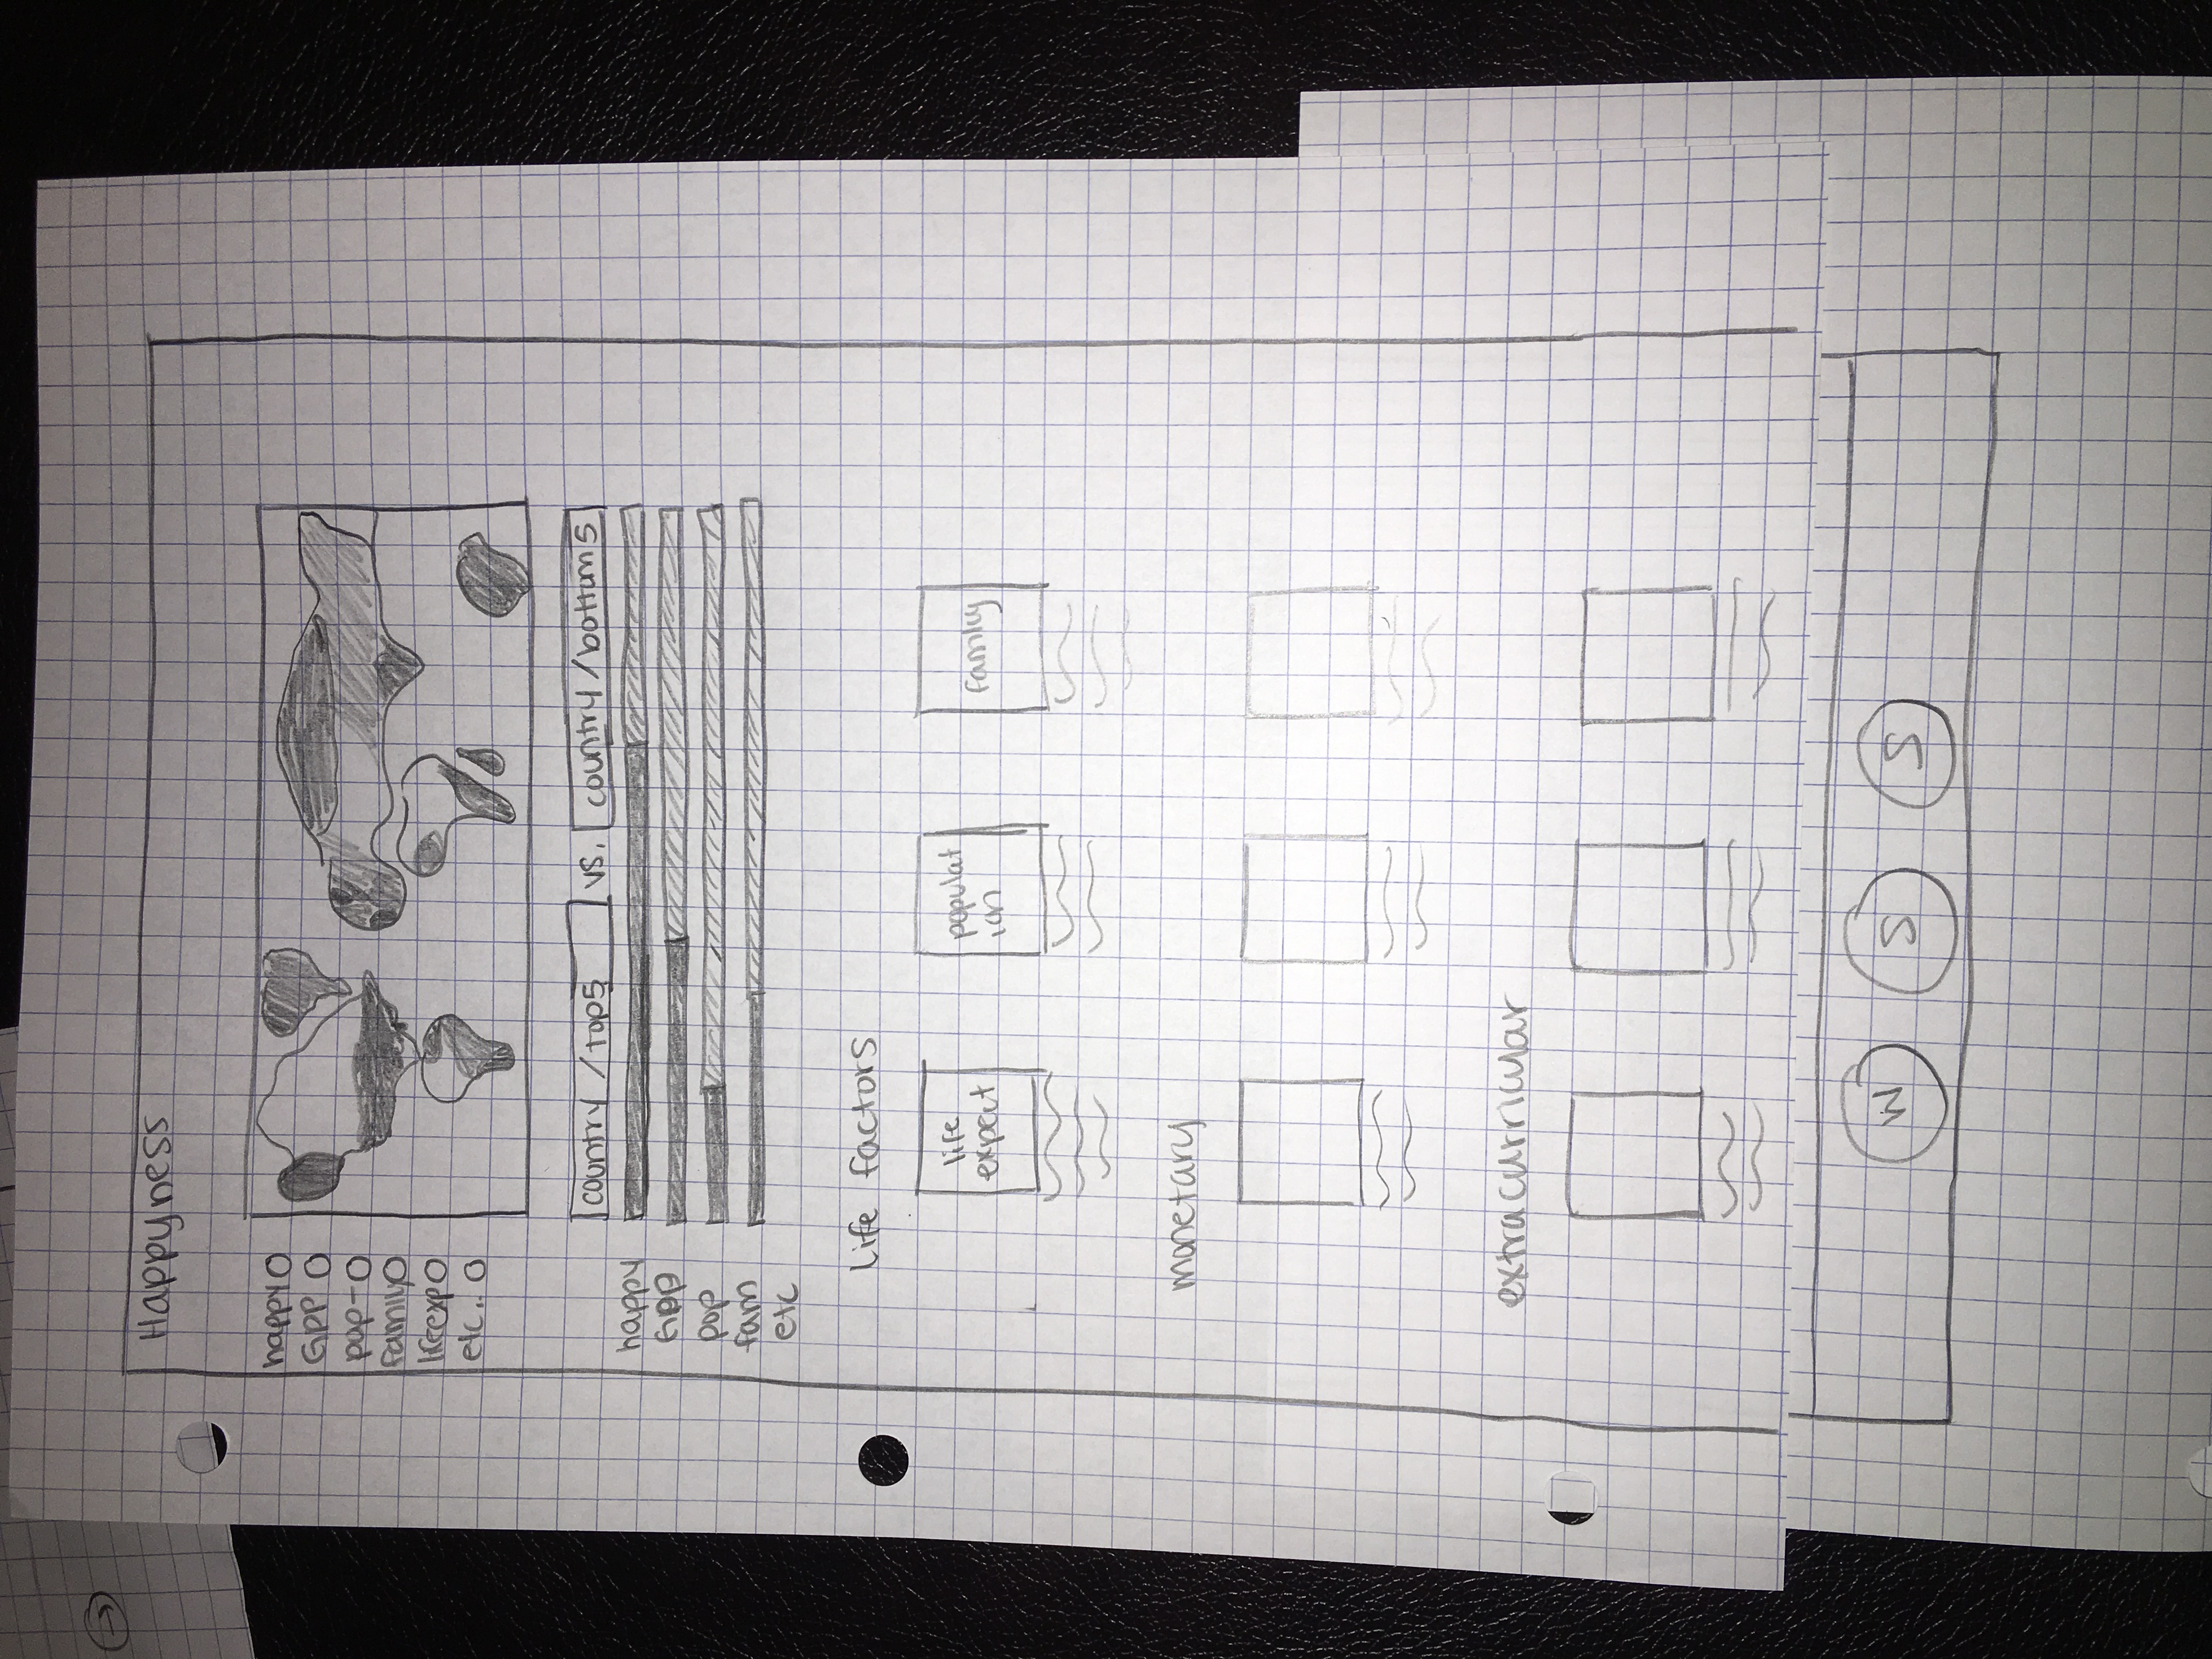 Happyness
happy
GPP
pop-
family
lifeexp
etc..
country / top5 vs. country / bottom 5
happy
GPP
pop
fam
etc
life factors
life
expect
populat
ion
family
monetary
extracurricular
W S S